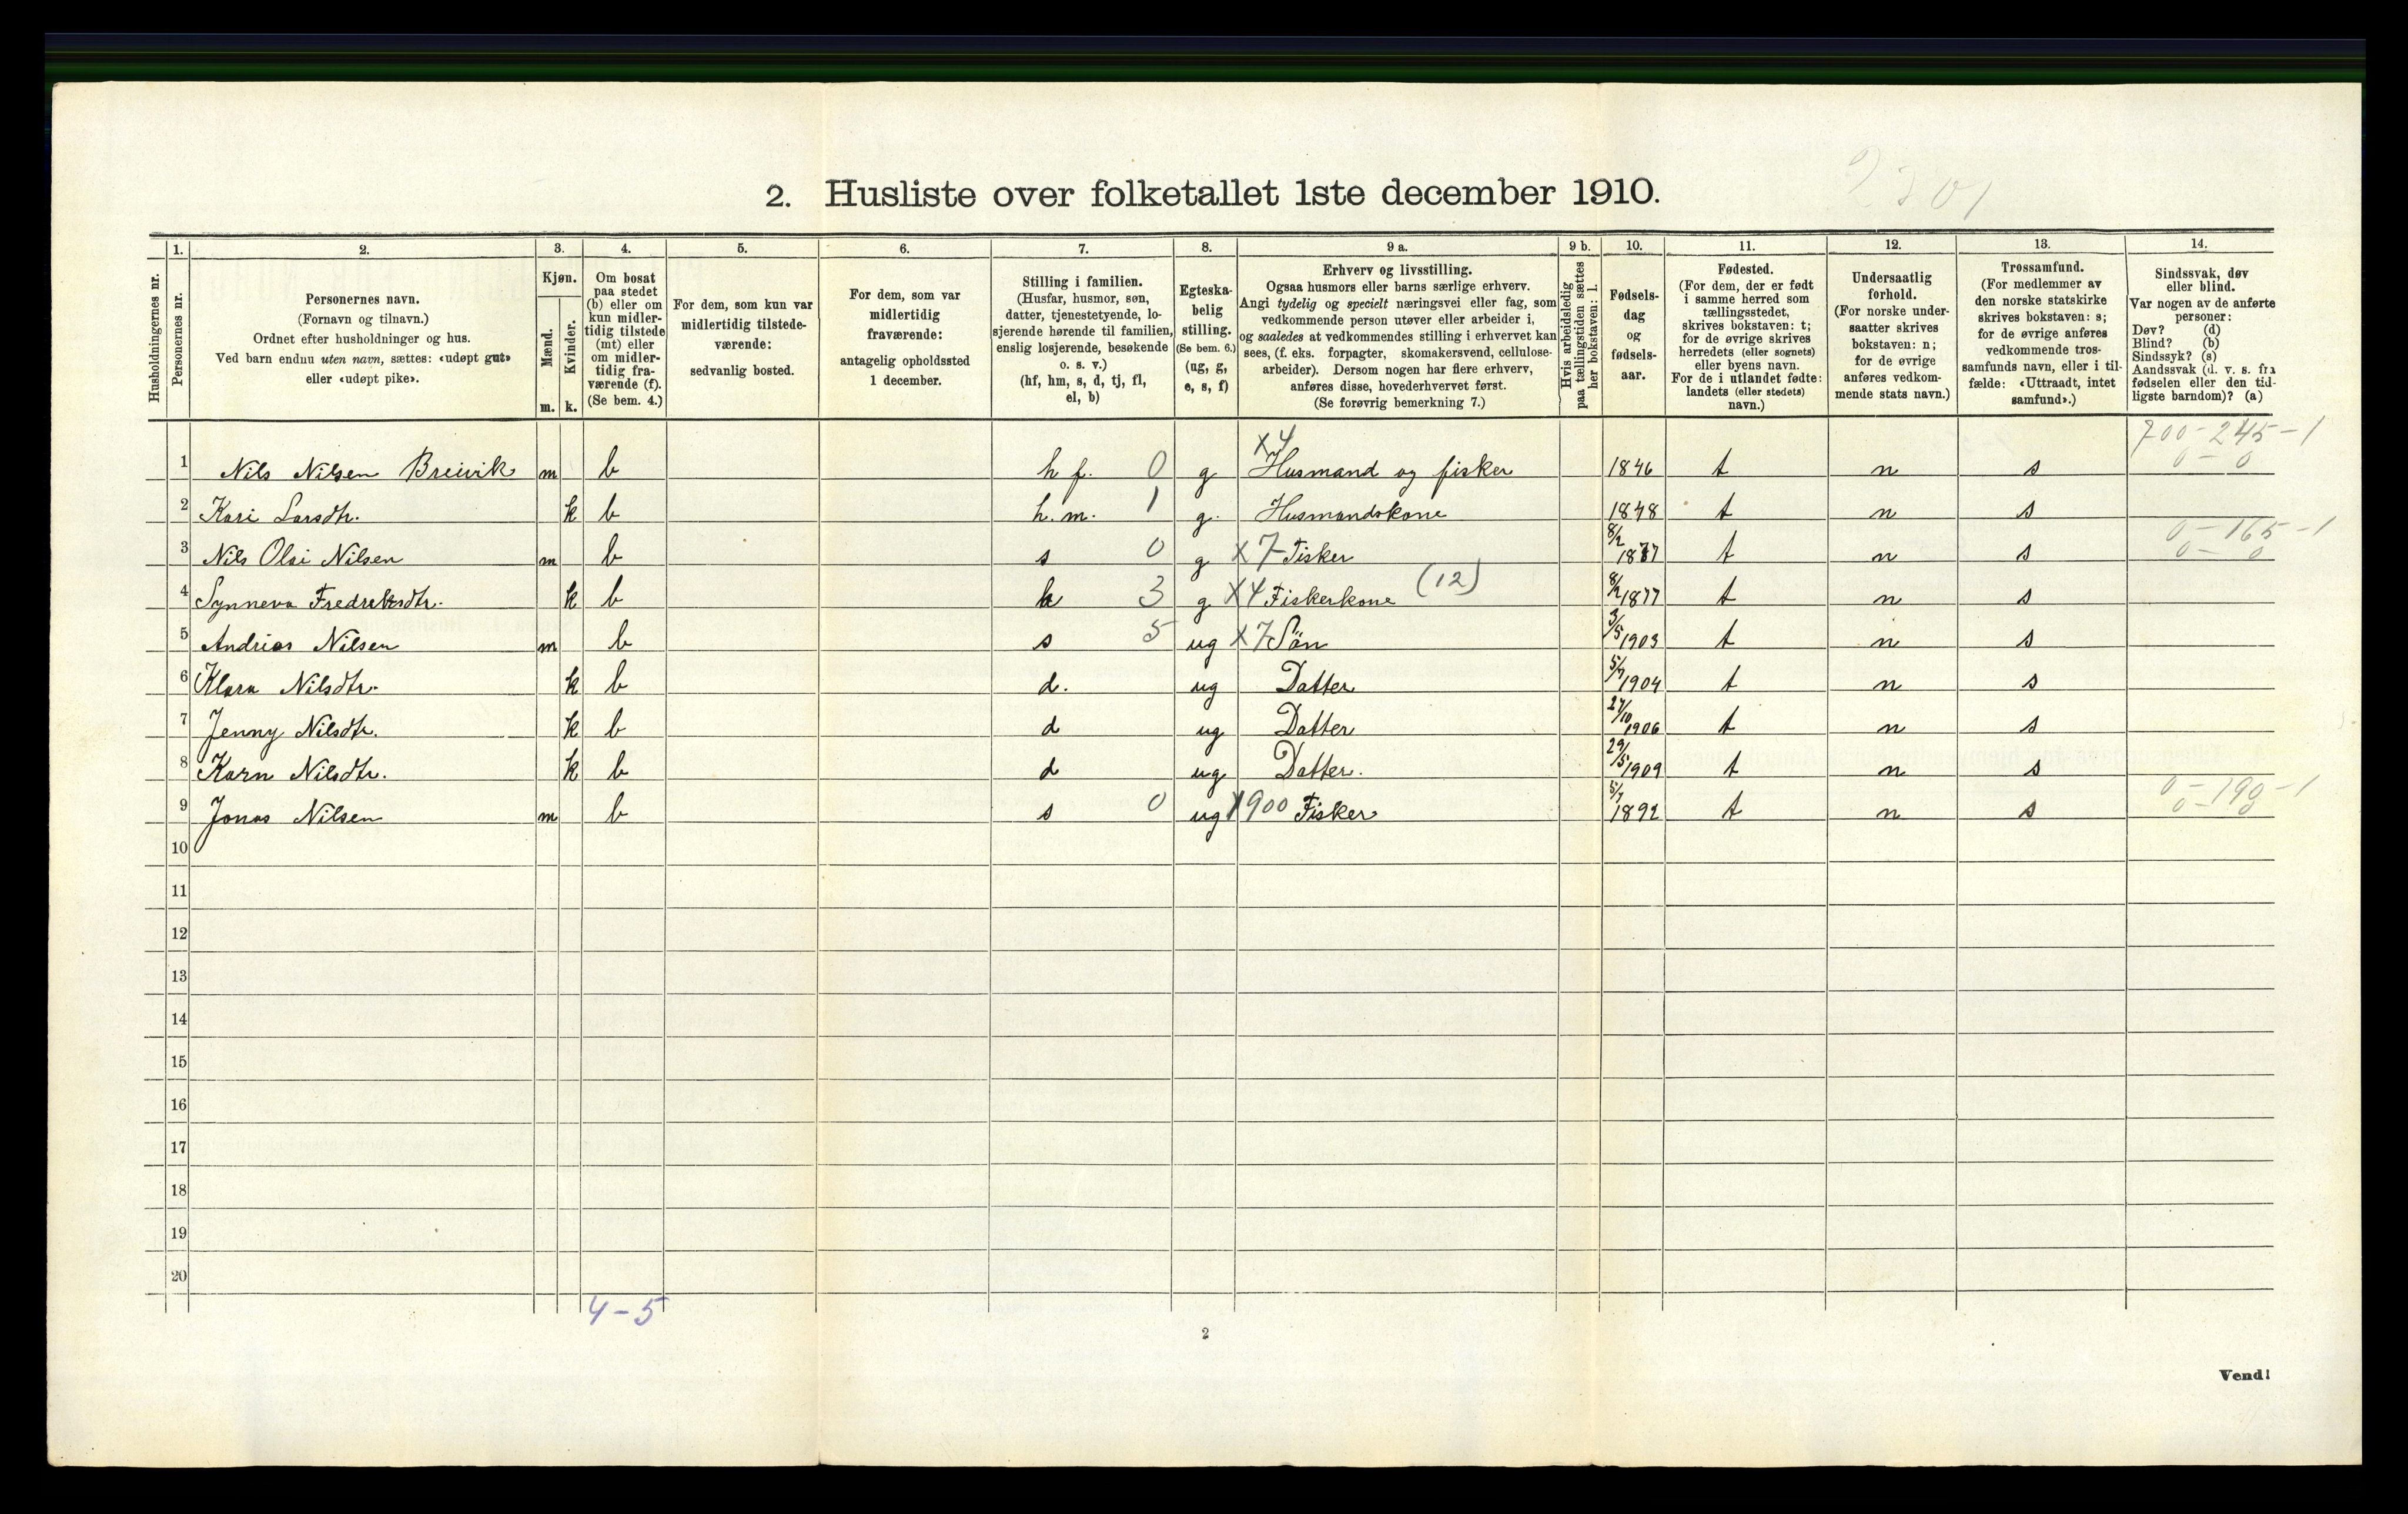 2301
2. Husliste over folketallet 1ste december 1910.
Husholdningernes nr.
1. Personernes nr.
2. Personernes navn.
(Fornavn og tilnavn.)
Ordnet efter husholdninger og hus.
Ved barn endnu uten navn, sættes: «udøpt gut»
eller «udøpt pike».
3. Kjøn.
Mænd. m.
Kvinder. k.
4. Om bosat
paa stedet
(b) eller om
kun midler-
tidig tilstede
(mt) eller
om midler-
tidig fra-
værende (f).
(Se bem. 4.)
5. For dem, som kun var
midlertidig tilstede-
værende:
sedvanlig bosted.
6. For dem, som var
midlertidig
fraværende:
antagelig opholdssted
1 december.
7. Stilling i familien.
(Husfar, husmor, søn,
datter, tjenestetyende, lo-
sjerende hørende til familien,
enslig losjerende, besøkende
o. s. v.)
(hf, hm, s, d, tj, fl,
el, b)
8. Egteska-
belig
stilling.
(Se bem. 6.)
(ug, g,
e, s, f)
9 a. Erhverv og livsstilling.
Ogsaa husmors eller barns særlige erhverv.
Angi tydelig og specielt næringsvei eller fag, som
vedkommende person utøver eller arbeider i,
og saaledes at vedkommendes stilling i erhvervet kan
sees, (f. eks. forpagter, skomakersvend, cellulose-
arbeider). Dersom nogen har flere erhverv,
anføres disse, hovederhvervet først.
(Se forøvrig bemerkning 7.)
9 b. Hvis arbeidsledig
paa tællingstiden sættes
her bokstaven: l.
10. Fødsels-
dag
og
fødsels-
aar.
11. Fødested.
(For dem, der er født
i samme herred som
tællingsstedet,
skrives bokstaven: t;
for de øvrige skrives
herredets (eller sognets)
eller byens navn.
For de i utlandet fødte:
landets (eller stedets)
navn.)
12. Undersaatlig
forhold.
(For norske under-
saatter skrives
bokstaven: n;
for de øvrige
anføres vedkom-
mende stats navn.)
13. Trossamfund.
(For medlemmer av
den norske statskirke
skrives bokstaven: s;
for de øvrige anføres
vedkommende tros-
samfunds navn, eller i til-
fælde: «Uttraadt, intet
samfund».)
14. Sindssvak, døv
eller blind.
Var nogen av de anførte
personer:
Døv? (d)
Blind? (b)
Sindssyk? (s)
Aandssvak (d. v. s. fra
fødselen eller den tid-
ligste barndom)? (a)
X4 700-245-1
1 Nils Nilsen Breivik m b hf. 0 g Husmand og fisker 1846 t n s 0-0
2 Kari Larsdtr. k b h.m. 1 g. Husmandskone 1848 t n s
0-165-1
3 Nils Olai Nilsen m b s 0 g X7 Fisker 8/2 1877 t n s 0-0
4 Synneva Fredreksdtr. k b h 3 g X4 Fiskerkone (12) 8/2 1877 t n s
5 Andrias Nilsen m b s 5 ug X7 Sön 3/5 1903 t n s
6 Klara Nilsdtr. k b d. ug Datter 5/7 1904 t n s
7 Jenny Nilsdtr. k b d ug Datter 27/10 1906 t n s
8 Karn Nilsdtr. k b d ug Datter. 29/5 1909 t n s
0-190-1
9 Jonas Nilsen m b s 0 ug X900 Fisker 5/7 1892 t n s 0-0
10
11
12
13
14
15
16
17
18
19
20
4-5
2
Vend!